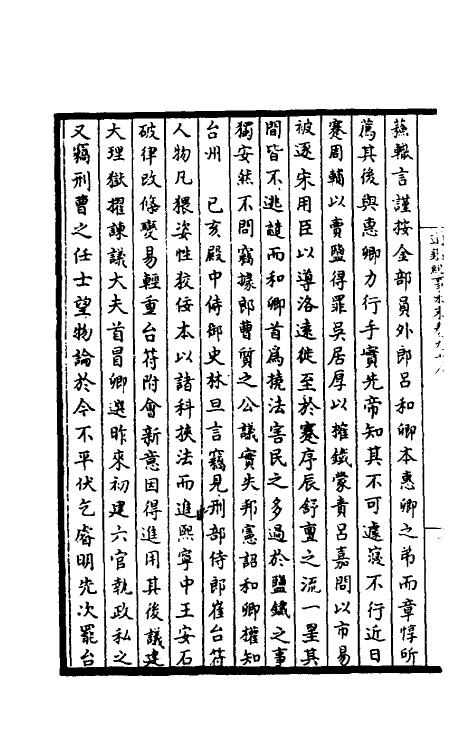 蘇轍言謹按金部員外郎呂和卿本惠卿之弟而章惇所
薦其後與惠卿力行手實先帝知其不可遽寢不行近日
蹇周輔以賣鹽得罪吳居厚以榷鐵蒙責呂嘉問以市易
被逐宋用臣以導洛遠徙至於蹇序辰舒亶之流一罣其
間皆不逃譴而和卿首為撓法害民之多過於鹽鐵之事
獨安然不問竊據郎曹質之公議實失邦憲詔和卿權知
台州　己亥殿中侍御史林旦言竊見刑部侍郎崔台符
人物凡猥姿性狡佞本以諸科挾法而進熙寧中王安石
破律改條變易輕重台符附會新意因得進用其後議建
大理獄擢諫議大夫首冒卿選昨來初建六官執政私之
又竊刑曹之任士望物論於今不平伏乞睿明先次罷台